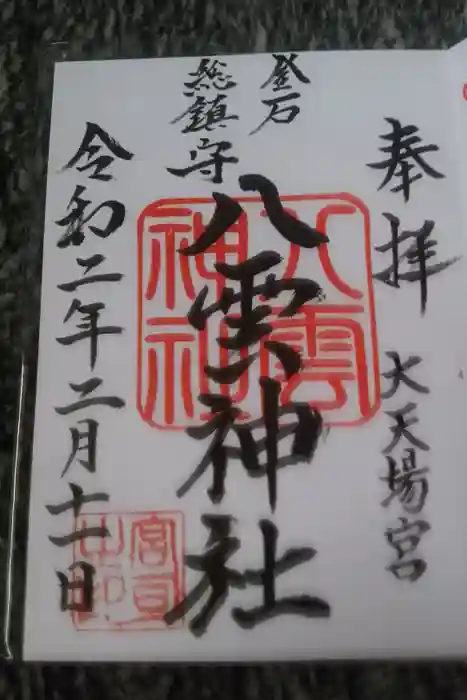 奉拝
大天場宮
釜石
総鎮守
八雲神社
八雲
神社
令和二年二月十一日
宮司
之印